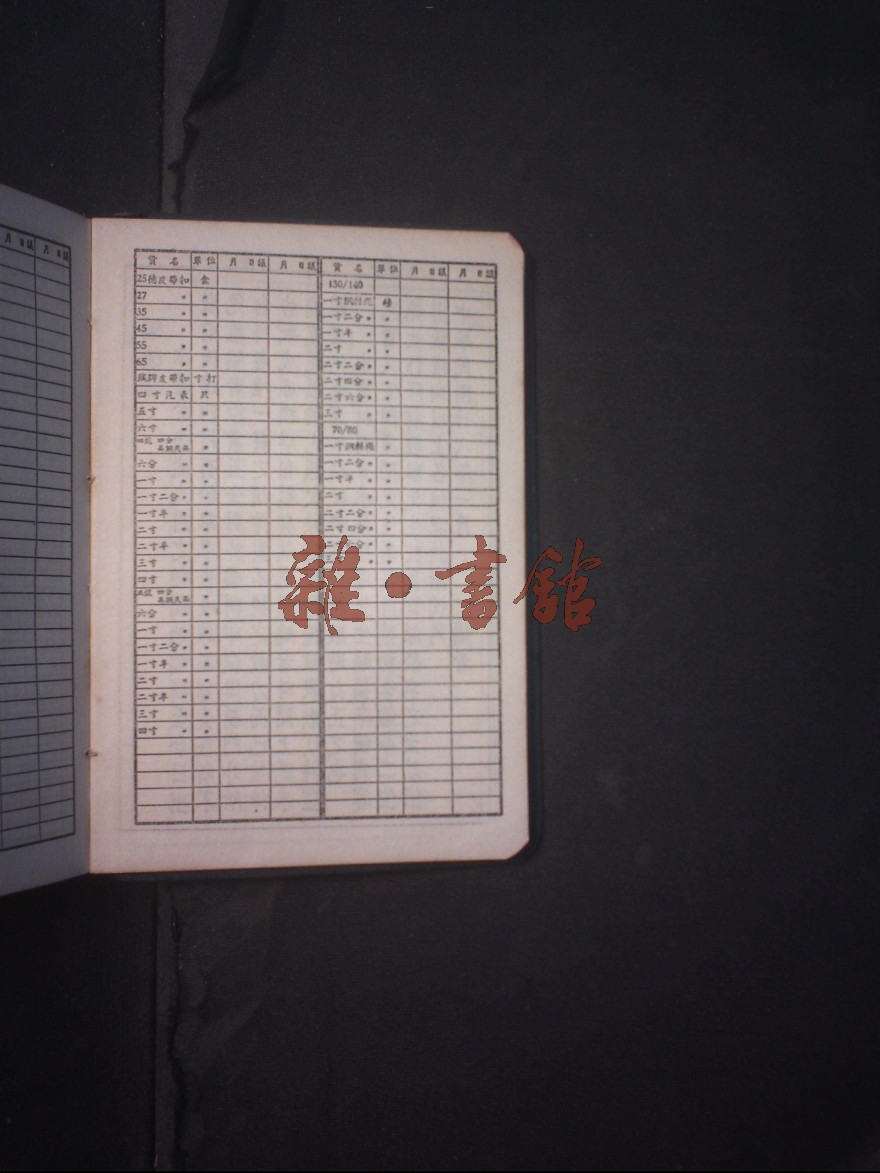 月 日議 月 日議
貨 名 單位 月 日議 月 日議
25 皮帶扣
27 〃 〃
35 〃 〃
45 〃 〃
55 〃 〃
65 〃 〃
皮帶扣 寸打
四寸汽表 只
五寸 〃 〃
六寸 〃 〃
四號 四分 〃
六分 〃 〃
一寸 〃 〃
一寸二分 〃 〃
一寸半 〃 〃
二寸 〃 〃
二寸半 〃 〃
三寸 〃 〃
四寸 〃 〃
五號 四分 〃
六分 〃 〃
一寸 〃 〃
一寸二分 〃 〃
一寸半 〃 〃
二寸 〃 〃
二寸半 〃 〃
三寸 〃 〃
四寸 〃 〃
貨 名 單位 月 日議 月 日議
130/140
一寸
一寸二分 〃 〃
一寸半 〃 〃
二寸 〃 〃
二寸二分 〃 〃
二寸四分 〃 〃
二寸六分 〃 〃
三寸 〃 〃
70/80
一寸 〃
一寸二分 〃 〃
一寸半 〃 〃
二寸 〃 〃
二寸二分 〃 〃
二寸四分 〃 〃
二寸六分 〃 〃
三寸 〃 〃
雜·書館